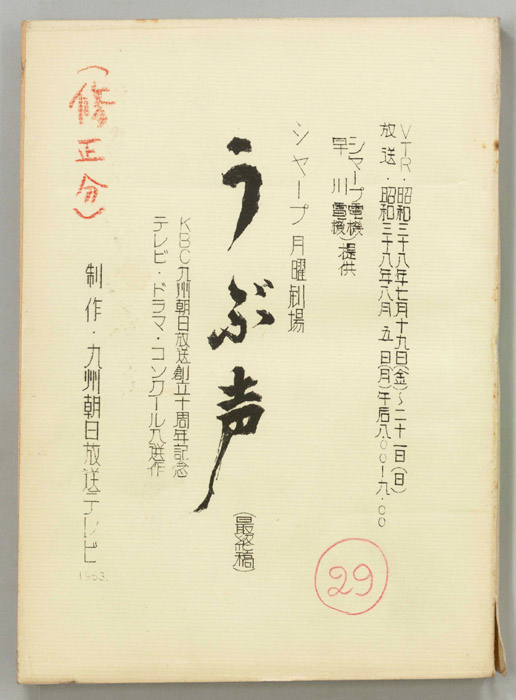 VTR・昭和三十八年七月十九日(金)～二十一日(日)
放送・昭和三十八年八月五日(月)午后八・〇〇―九・〇〇
シャープ電機
早川電機)提供
シャープ月曜劇場
うぶ声
(最終稿)
KBC九州朝日放送創立十周年記念
テレビ・ドラマ・コンクール入選作
(修正分)
制作・九州朝日放送テレビ
1963.
29